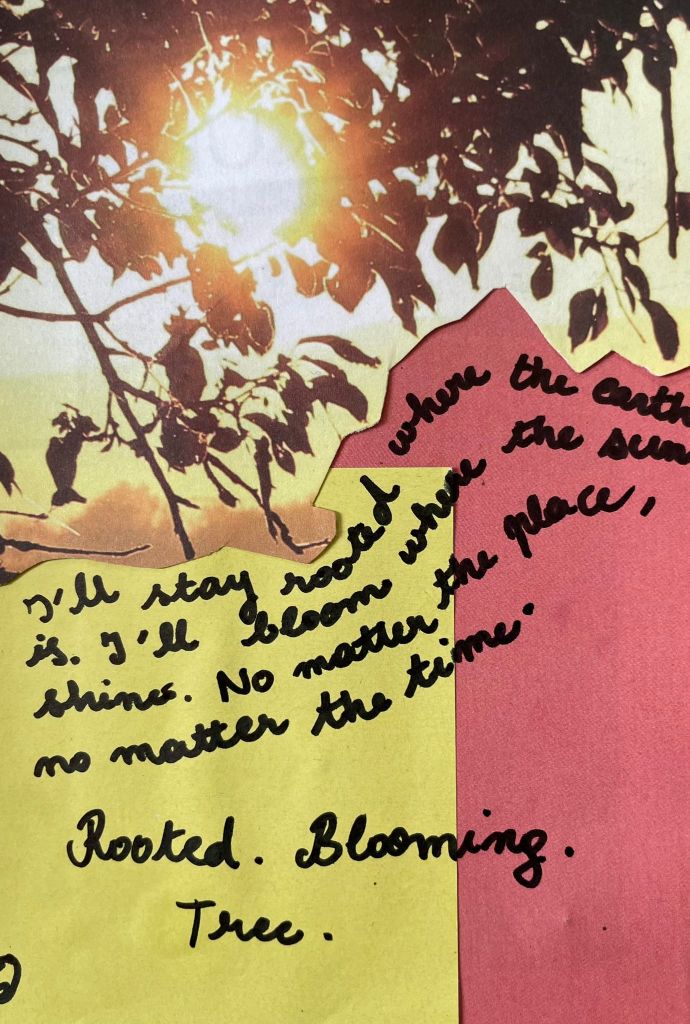 I'll stay rooted where the earth
is. I'll bloom where the sun
shines. No matter the place,
no matter the time.
Rooted. Blooming.
Tree.